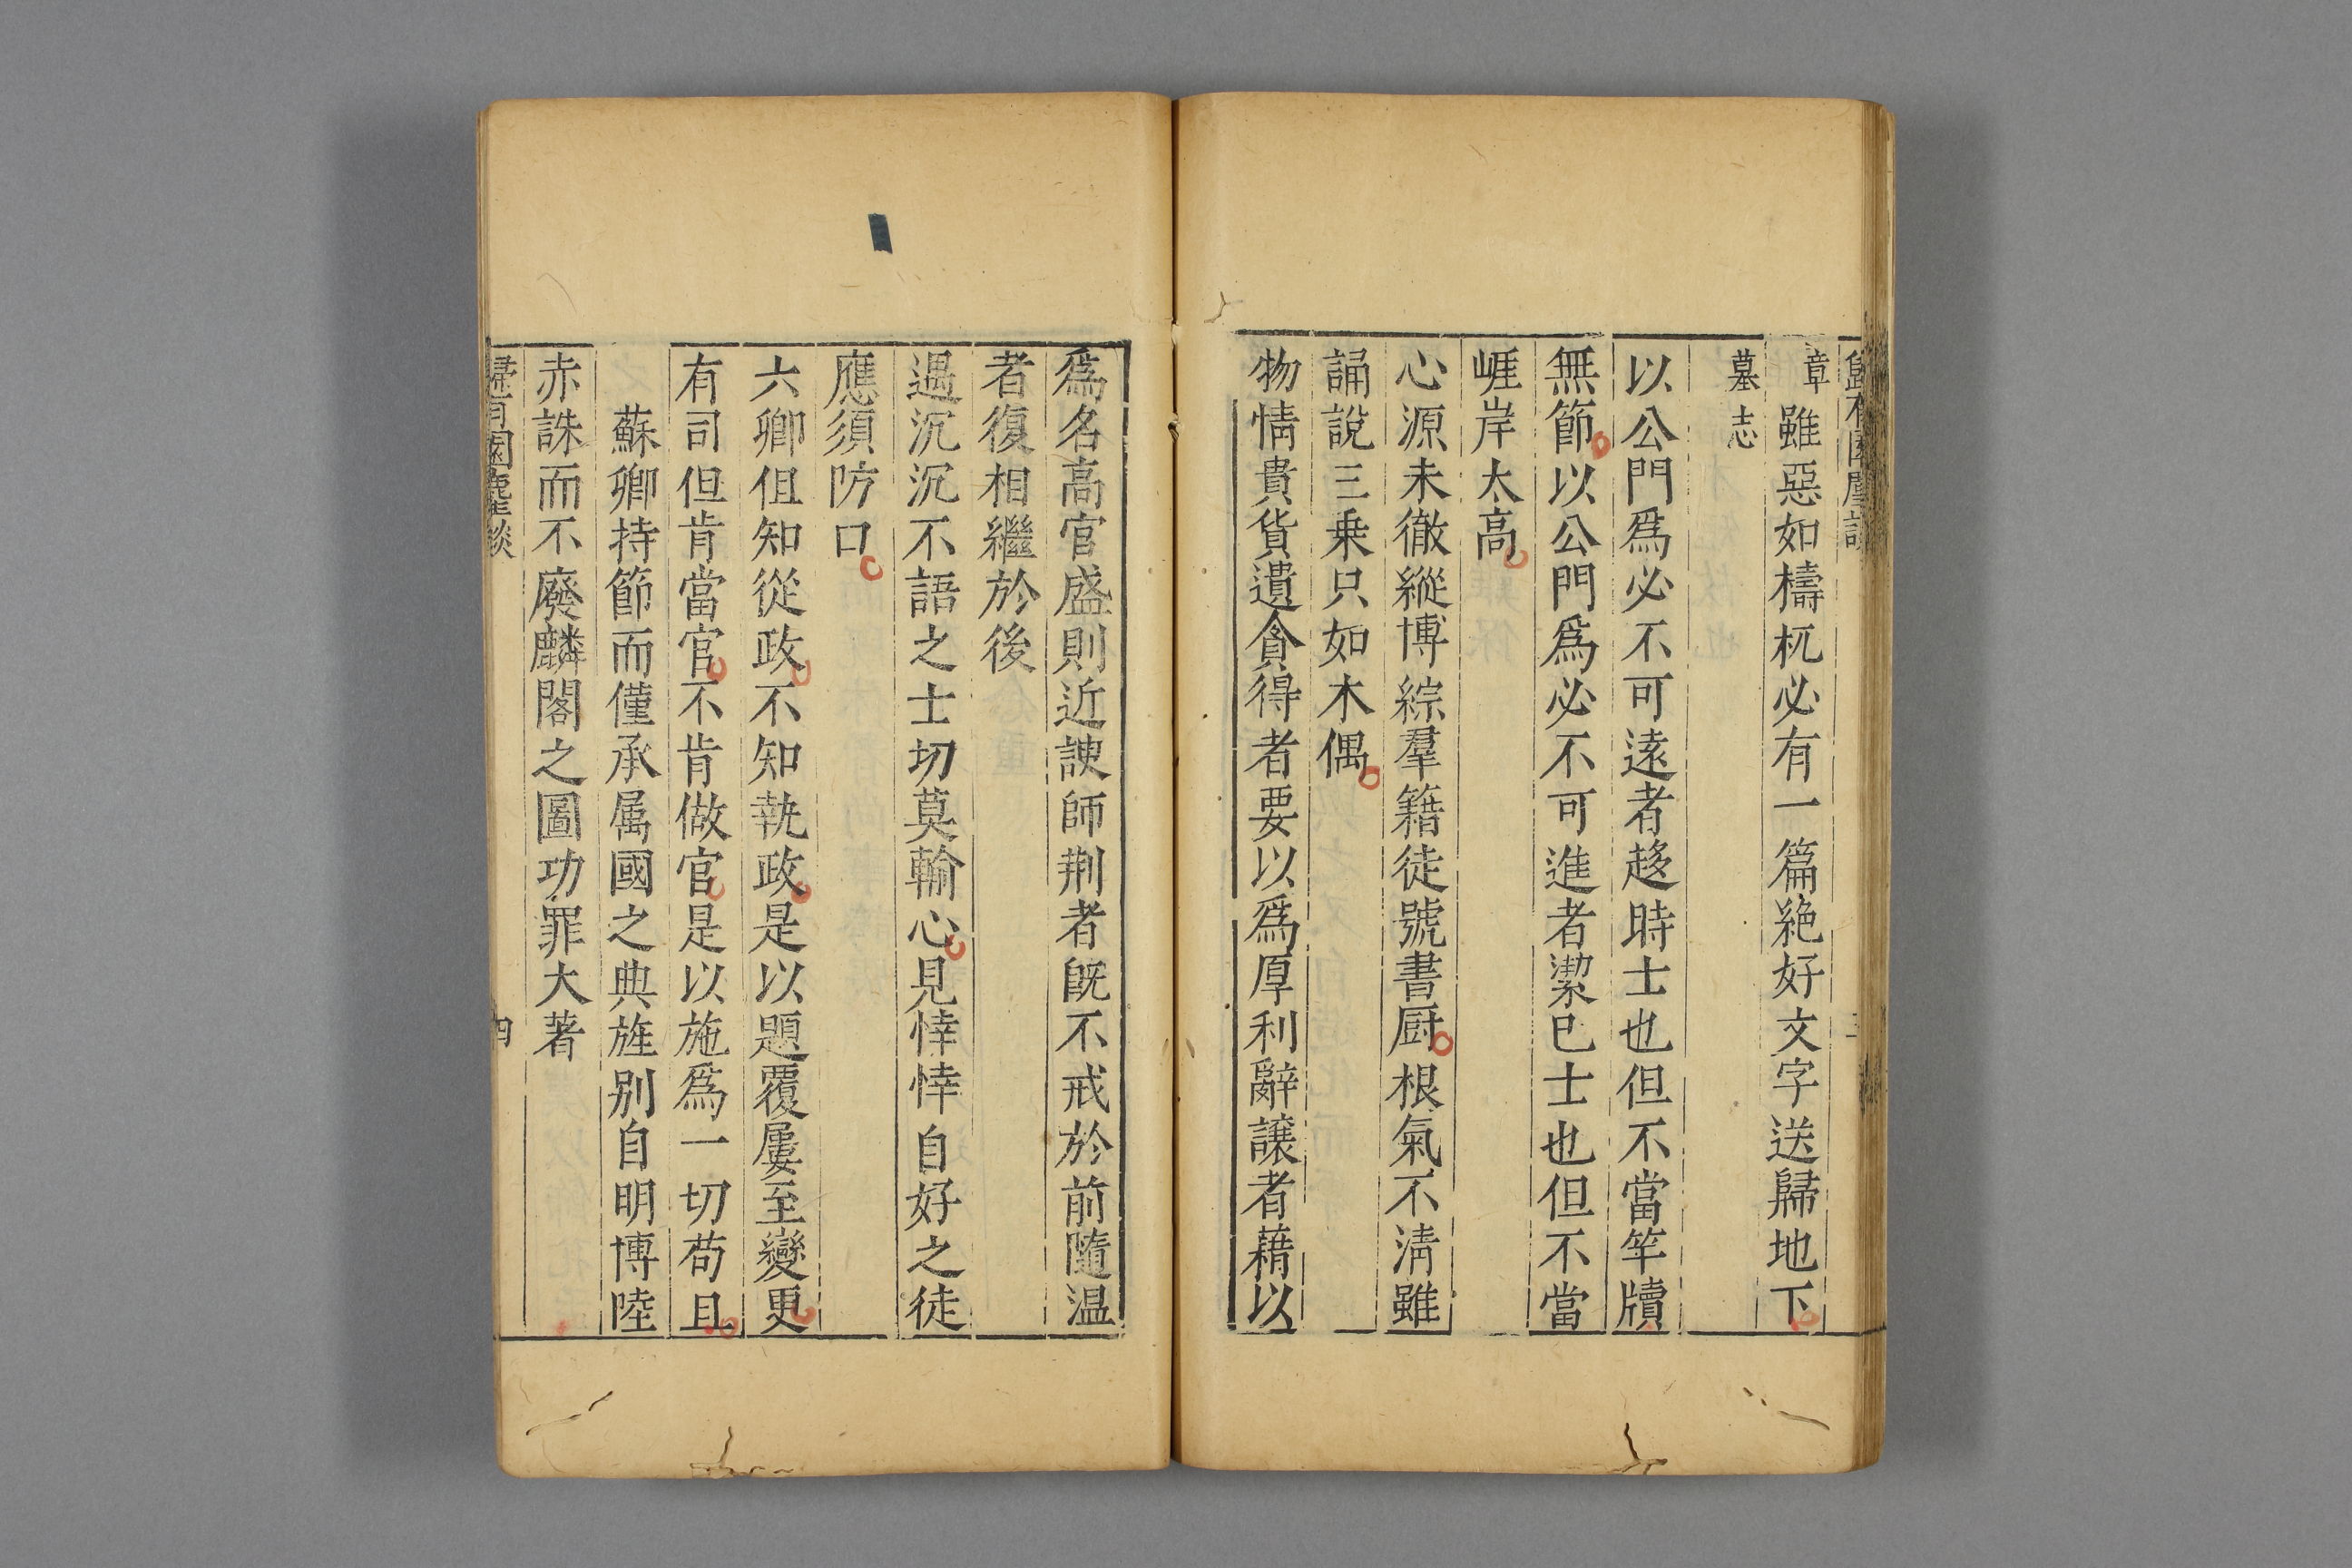 歸有園麈談
三
章
雖惡如檮杌必有一篇絶好文字送歸地下
墓志
以公門爲必不可遠者趍時士也但不當竿牘
無節以公門爲必不可進者潔已士也但不當
崕岸太高
心源未徹縱博綜羣籍徒號書厨根氣不淸雖
誦說三乗只如木偶
物情貴貨遺貪得者要以爲厚利辭譲者藉以
爲名高官盛則近諛師荆者旣不戒於前隨温
者復相繼於後
遇沉沉不語之士切莫輸心見悻悻自好之徒
應須防口
六卿但知從政不知執政是以題覆屢至變更
有司但肯當官不肯做官是以施爲一切苟且
蘇卿持節而僅承属國之典旌别自明博陸
赤誅而不廢麟閣之圖功罪大著
歸有園麈談
四